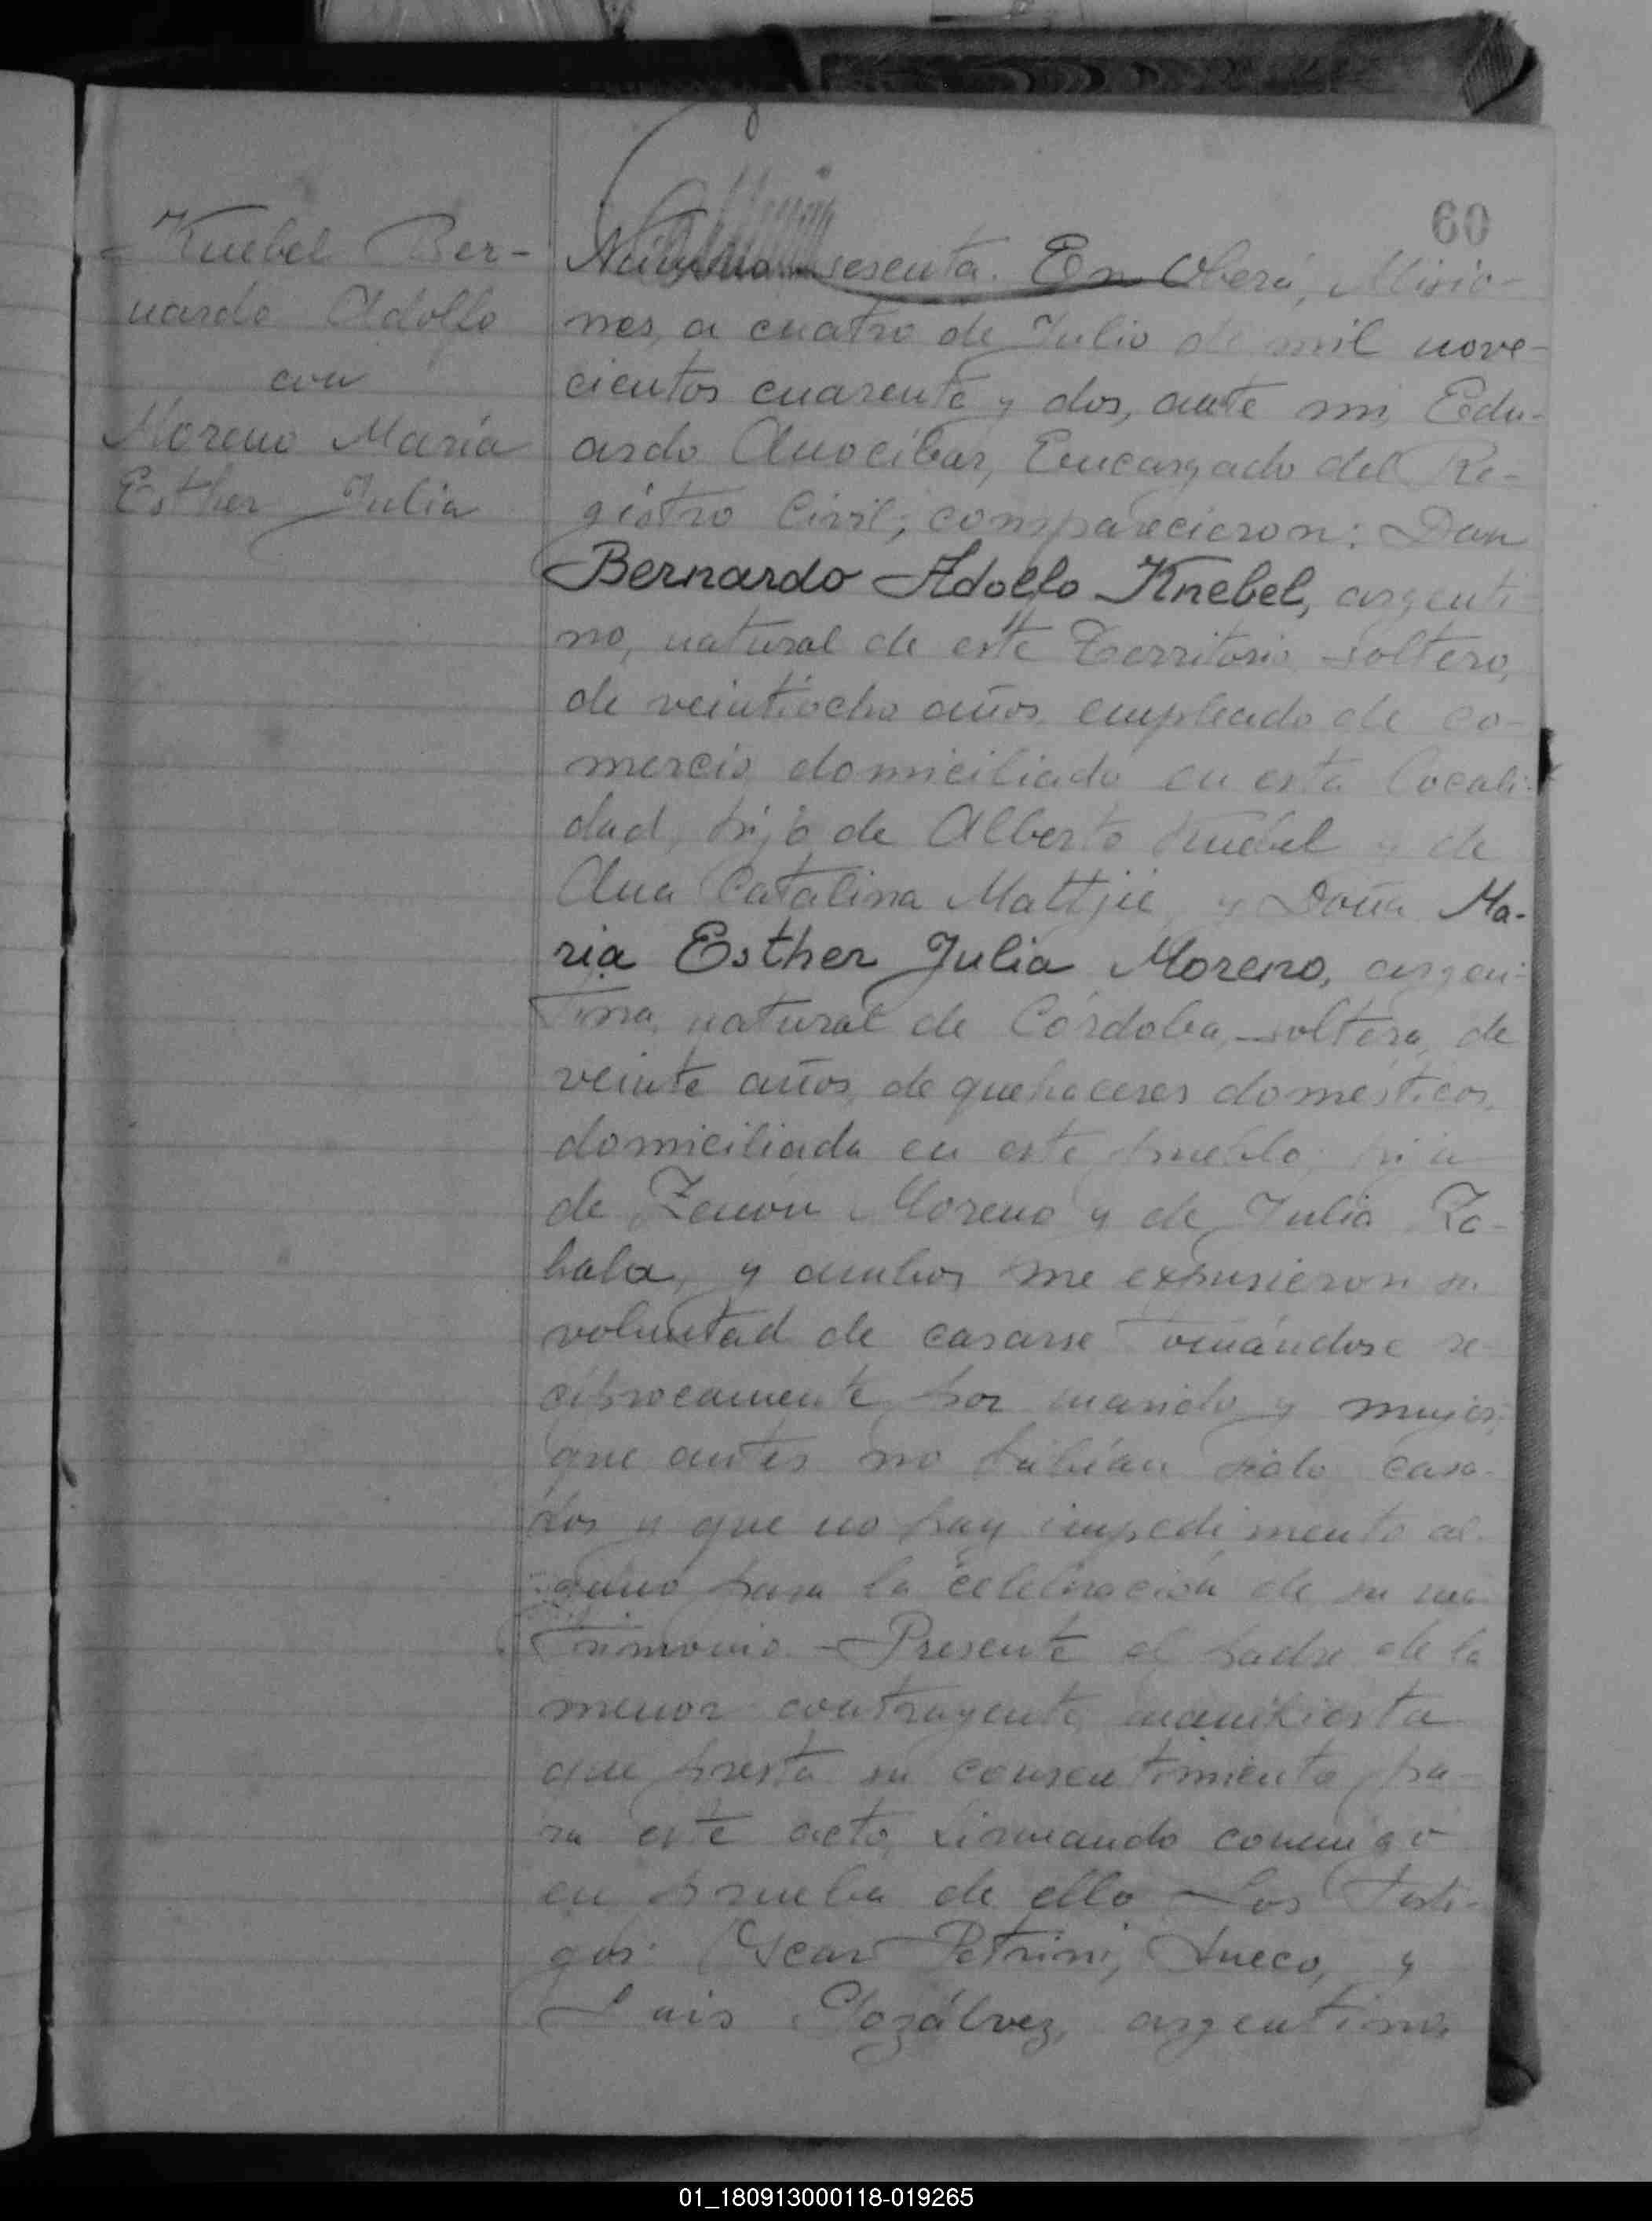 60
Knebel Ber-
nardo Adolfo
con
Moreno María
Esther Julia
Número sesenta. En Oberá, Misio-
nes, a cuatro de Julio de mil nove-
cientos cuarenta y dos, ante mi, Edu-
ardo Anocibar, Encargado del Re-
gistro Civil, comparecieron: Don
Bernardo Adolfo Knebel, argenti-
no, natural de este Territorio, soltero,
de veintiocho años, empleado de co-
mercio, domiciliado en esta locali-
dad, hijo de Alberto Knebel y de
Ana Catalina Mattjie, y Doña Ma-
ria Esther Julia Moreno, argen-
tina, natural de Córdoba, soltera, de
veinte años, de quehaceres domésticos,
domiciliada en este pueblo, hija
de Zenón Moreno y de Julia Za-
bala, y ambos me expusieron su
voluntad de casarse tomándose re-
ciprocamente por marido y mujer;
que antes no habían sido casa-
dos y que no hay impedimento al-
guno para la celebración de su ma-
trimonio. - Presente el padre de la
menor contrayente, manifiesta
que presta su consentimiento pa-
ra este acto, firmando conmigo
en prueba de ello. Los testi-
gos: Oscar Petrini, sueco, y
Luis Gozálvez, argentino,
01_180913000118-019265